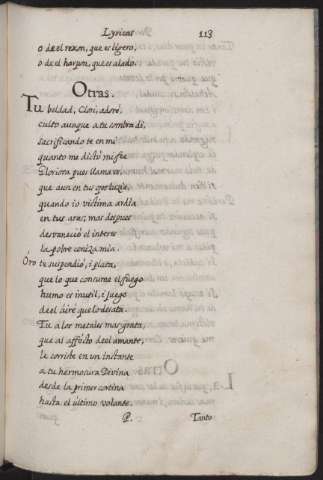 Lyricas 113
o de el rexon, que es ligero,
o de el harpon, que es alado.
Otras.
Tu beldad, Clori, adorè,
culto aunque a tu sombra di,
sacrificando te en mi
quanto me dictò mi fee
Gloriosa pues llama
que aun en tus
quando io victima ardia
en tus aras; mas despues
desvaneciò el interes
la pobre ceniza mia.
Oro te suspendiò, i plata,
que lo que consume el fuego
humo es inutil, i juego
de el aire que lo desata
Tu a los metales mas grata,
que al affecto de el amante,
le corriste en un instante
a tu hermosura Devina
desde la primer cortina
hasta el ultimo volante.
P. Tanto